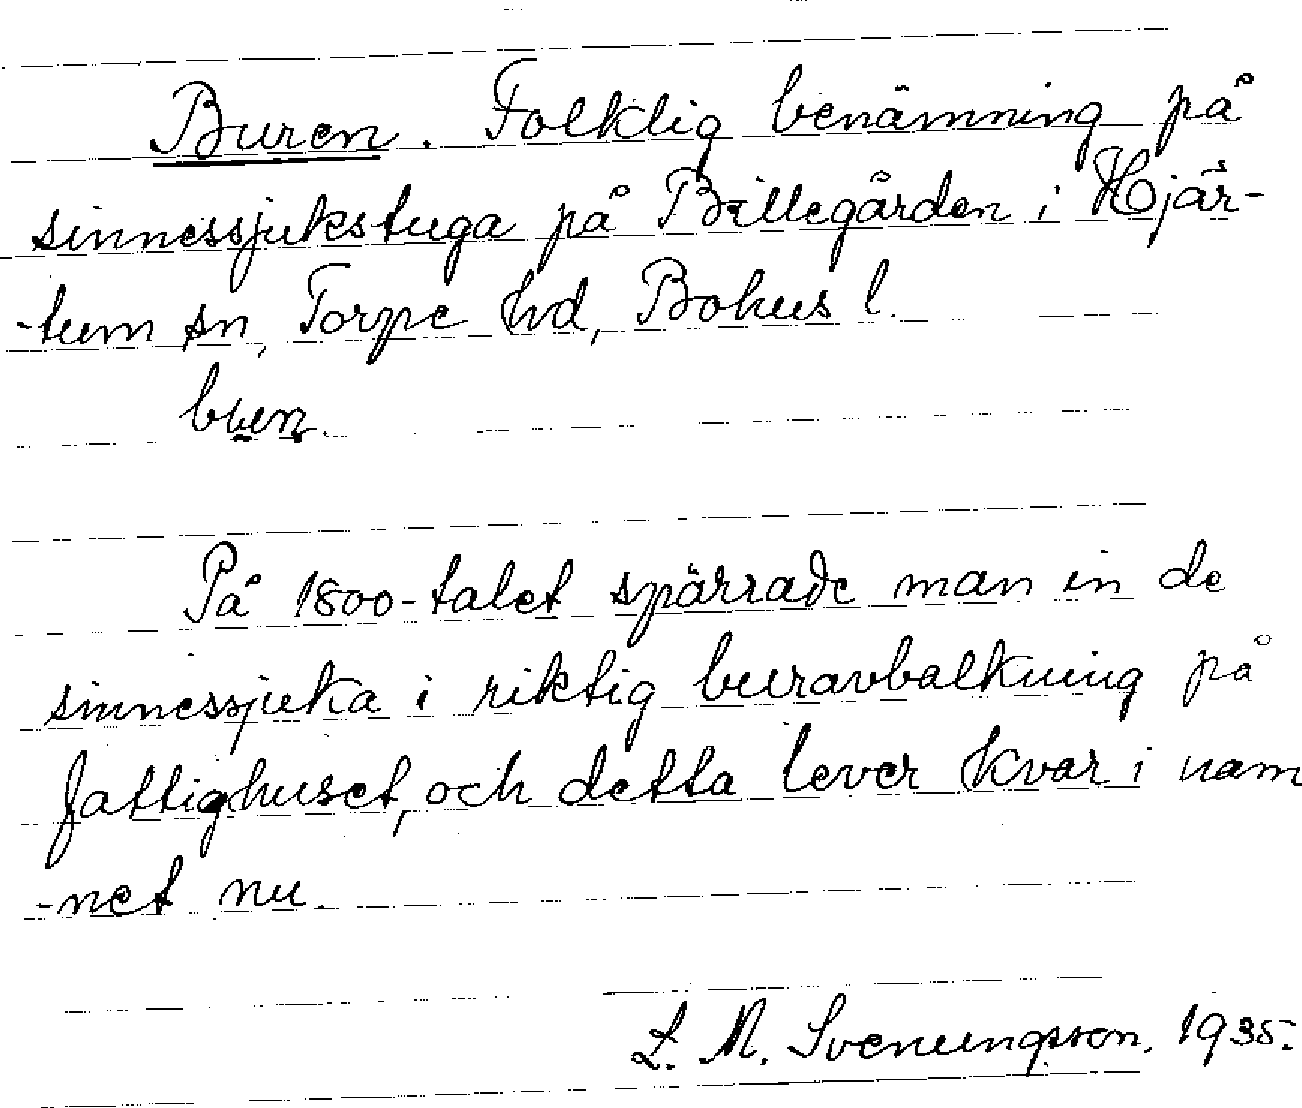 Buren. Folklig benämning på
sinnessjukstuga på Billegården i Hjär-
-tum sn, Torpe hd, Bohus l.
buen.
På 1800-talet spärrade man in de
sinnessjuka i riktig buravbalkning på
fattighuset, och detta lever kvar i nam
-net nu.
L. M. Svenungsson. 1935.